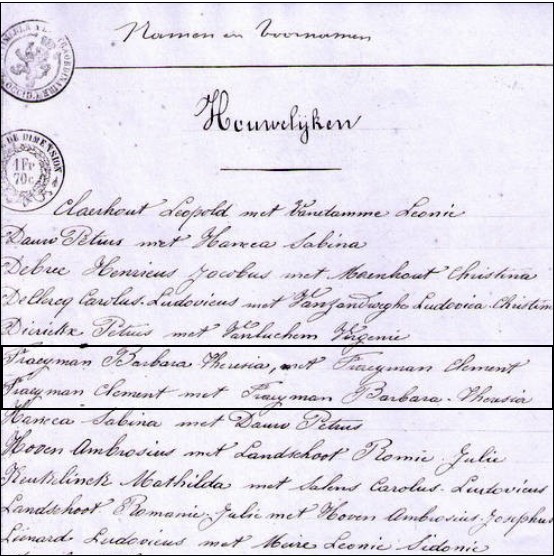 Namen en Voornamen
DE DIMENSION
1 Fr
70 c
Houwelijken
Claerhout Leopold met Vandamme Leonie
Dauw Petrus met Haneca Sabina
Debree Henricus Jacobus met Maenhout Christina
DeClercq Carolus-Ludovicus met Ludovica-Christin
Dierickx Petrus met Vanluchem Virgenie
Fraeyman Barbara Theresia, met Fraeyman Clement
Fraeyman Clement met Fraeyman Barbara-Theresia
Haneca Sabina met Dauw Petrus
Hoven Ambrosius met Landschoot Romie-Julie
Keukelinck Mathilda met Salens Carolus-Ludovicus
Landschoot Romanie-Julie met Hoven Ambrosius-Josephus
Lienard Ludovicus met Meire Leonie-Sidonie